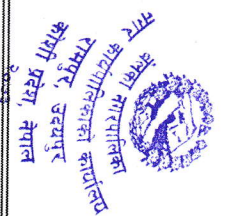 बेलका नगरपालिका
नगर कार्यपालिकाको कार्यालय
रामपुर, उदयपुर
कोशी प्रदेश, नेपाल
२०७३